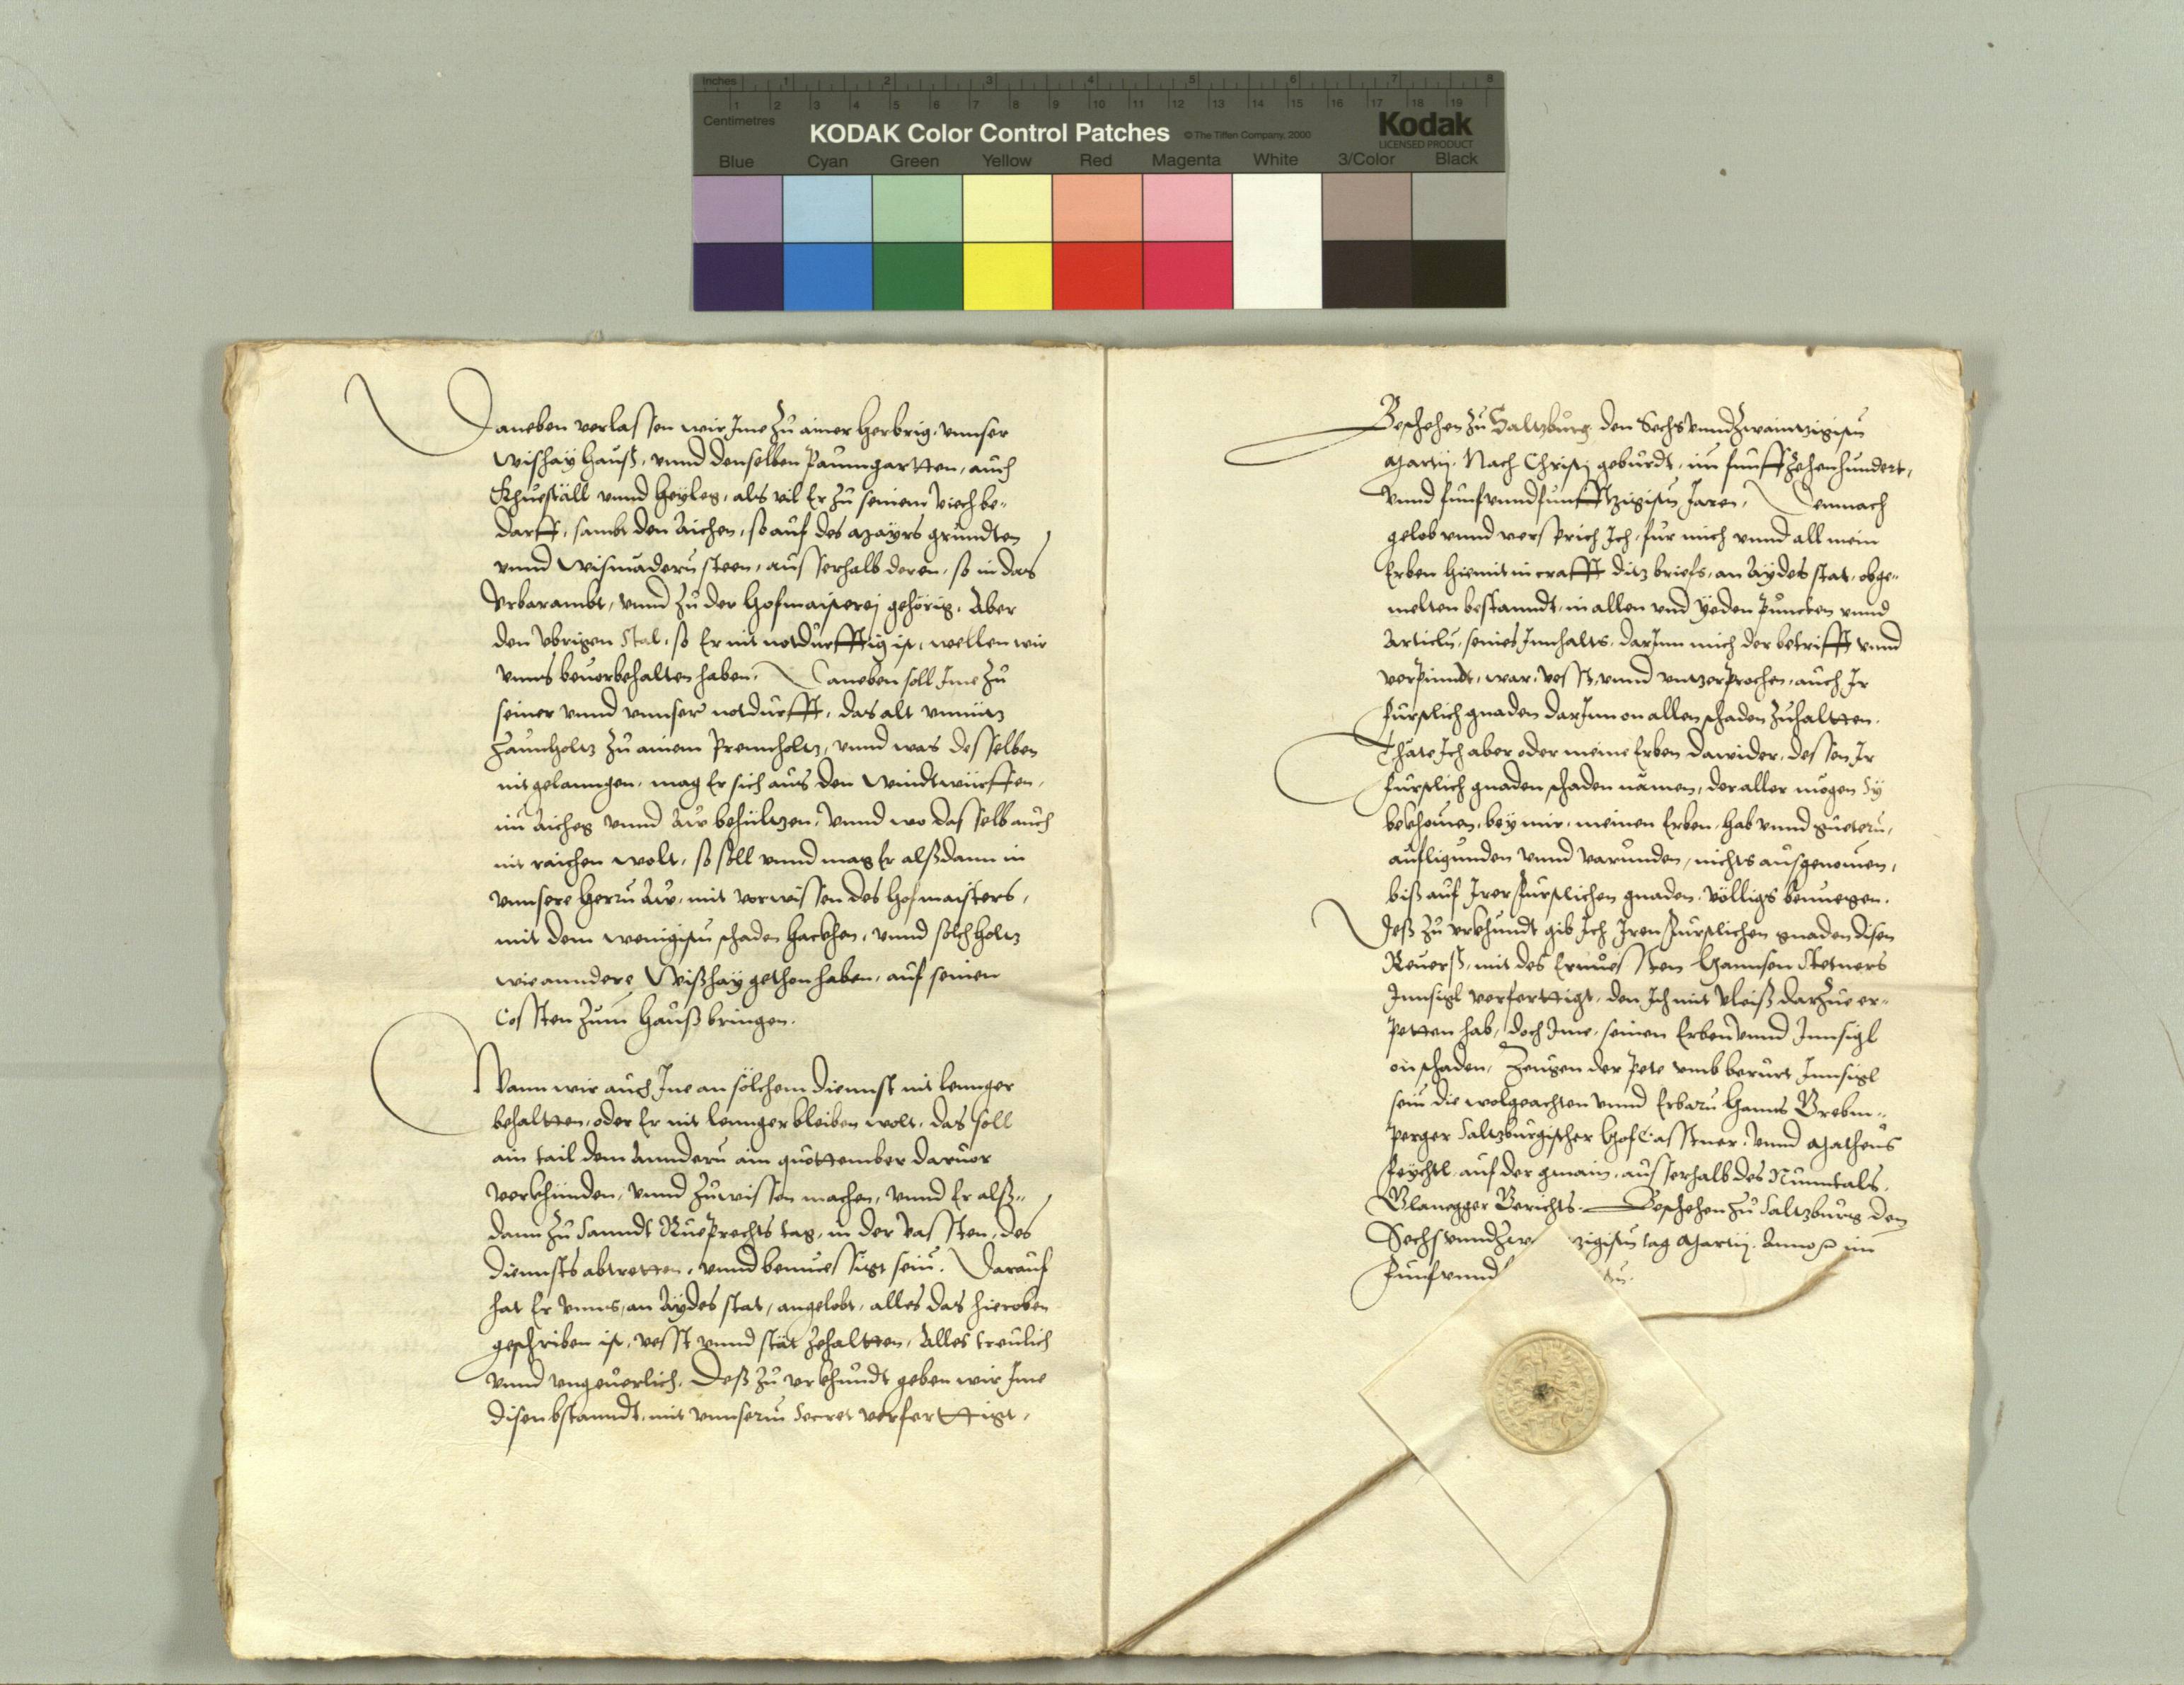 Inches 1 2 3 4 5 6 7 8
1 2 3 4 5 6 7 8 9 10 11 12 13 14 15 16 17 18 19
Centimetres
KODAK Color Control Patches © The Tiffen Company, 2000 Kodak
LICENSED PRODUCT
Blue Cyan Green Yellow Red Magenta White 3/Color Black
Daneben verlassen wir Jme zu ainer Herbrig, vnnser
Wishay hauß, vnnd denselben Paumgartten, auch
Khueställ vnnd Heyleg, als vil Er zu seinem viech be-
darff, sambt den Aichen, so auf des Mayrs grundten
vnnd Wismadern steen, ausserhalb deren, so in das
Vrbarambt, vnnd zu der Hofmaisterej gehörig. Aber
den vbrigen Stal, so Er nit notdurfftig ist, wellen wir
vnns beuorbehalten haben. Daneben soll Jme zu
seiner vnnd vnnser notdurfft, das alt vnnütz
Zaunholtz zu ainem Prennholtz, vnnd was desselben
nit gelanngen, mag Er sich aus den Windtwürffen,
im Aicheg vnnd Aw behültzen, vnnd wo dasselb auch
nit raichen wolt, so soll vnnd mag Er alßdann in
vnnsere Herrn Aw, mit vorwissen des Hofmaisters,
mit dem wenigisten schaden hackhen, vnnd solch holtz
wie anndere Wißhay gethon haben, auf seinen
Cossten zum Hauß bringen.
Wann wir auch Jne an sölchem Diennst nit lennger
behaltten, oder Er nit lennger bleiben wolt, das soll
ain tail dem Anndern ain quottember daruor
verkhünden, vnnd zuwissen machen, vnnd Er alß-
dann zu Sanndt Rueprechts tag, in der Vassten, des
Diennsts abtretten, vnnd bemüessigt sein. Darauf
hat Er vnns, an Aydes stat, angelobt, alles das hieroben
geschriben ist, vesst vnnd stät zehaltten, Alles treulich
vnnd vngeuerlich. Deß zu vrkhundt geben wir Jme
disen bstanndt, mit vnnserm Secret verferttigt,
Beschehen zu Saltzburg den Sechsvnndzwaintzigisten
Martij. Nach Christj geburdt, im funffzehenhundert,
vnnd funfvnndfunfftzigisten Jaren. Demnach
gelob vnnd versprich Jch, fur mich vnnd all mein
Erben hiemit in crafft ditz briefs, an Aydes stat, obge-
melten bestanndt, in allen vnd yeden Puncten vnnd
Articln, seines Jnnhalts, darJnn mich der betrifft vnnd
verpindt, war, vesst, vnnd vnzerprochen, auch Jr
fürstlich gnaden darJnn on allen schaden zuhaltten.
Thäte Jch aber oder meine Erben dawider, dessen Jr
fürstlich gnaden schaden nämen, der aller mögen Sy
bekhomen, bey mir, meinen Erben, hab vnnd guetern,
aufligunden vnnd varunden, nichts ausgenomen,
biß auf Jrer fürstlichen gnaden völligs benuegen.
Deß zu vrkhundt gib Jch Jren fürstlichen gnaden disen
Reuerß, mit des Ernuessten Hannsen Stetners
Jnnsigl verferttigt, den Jch mit vleiß darzue er-
petten hab, doch Jme, seinen Erben vnnd Jnnsigl
on schaden, Zeugen der Pete vmb berürt Jnnsigl
sein die wolgeachten vnnd Erbarn Hanns
perger Saltzburgischer HofCasstner, vnnd Matheus
Feychtl auf der gmain, ausserhalb des Nunntals,
Glanegger Gerichts. Beschehen zu Saltzburg den
Sechsvnndzw zigisten tag Martij. Anno im
Funfvnnd